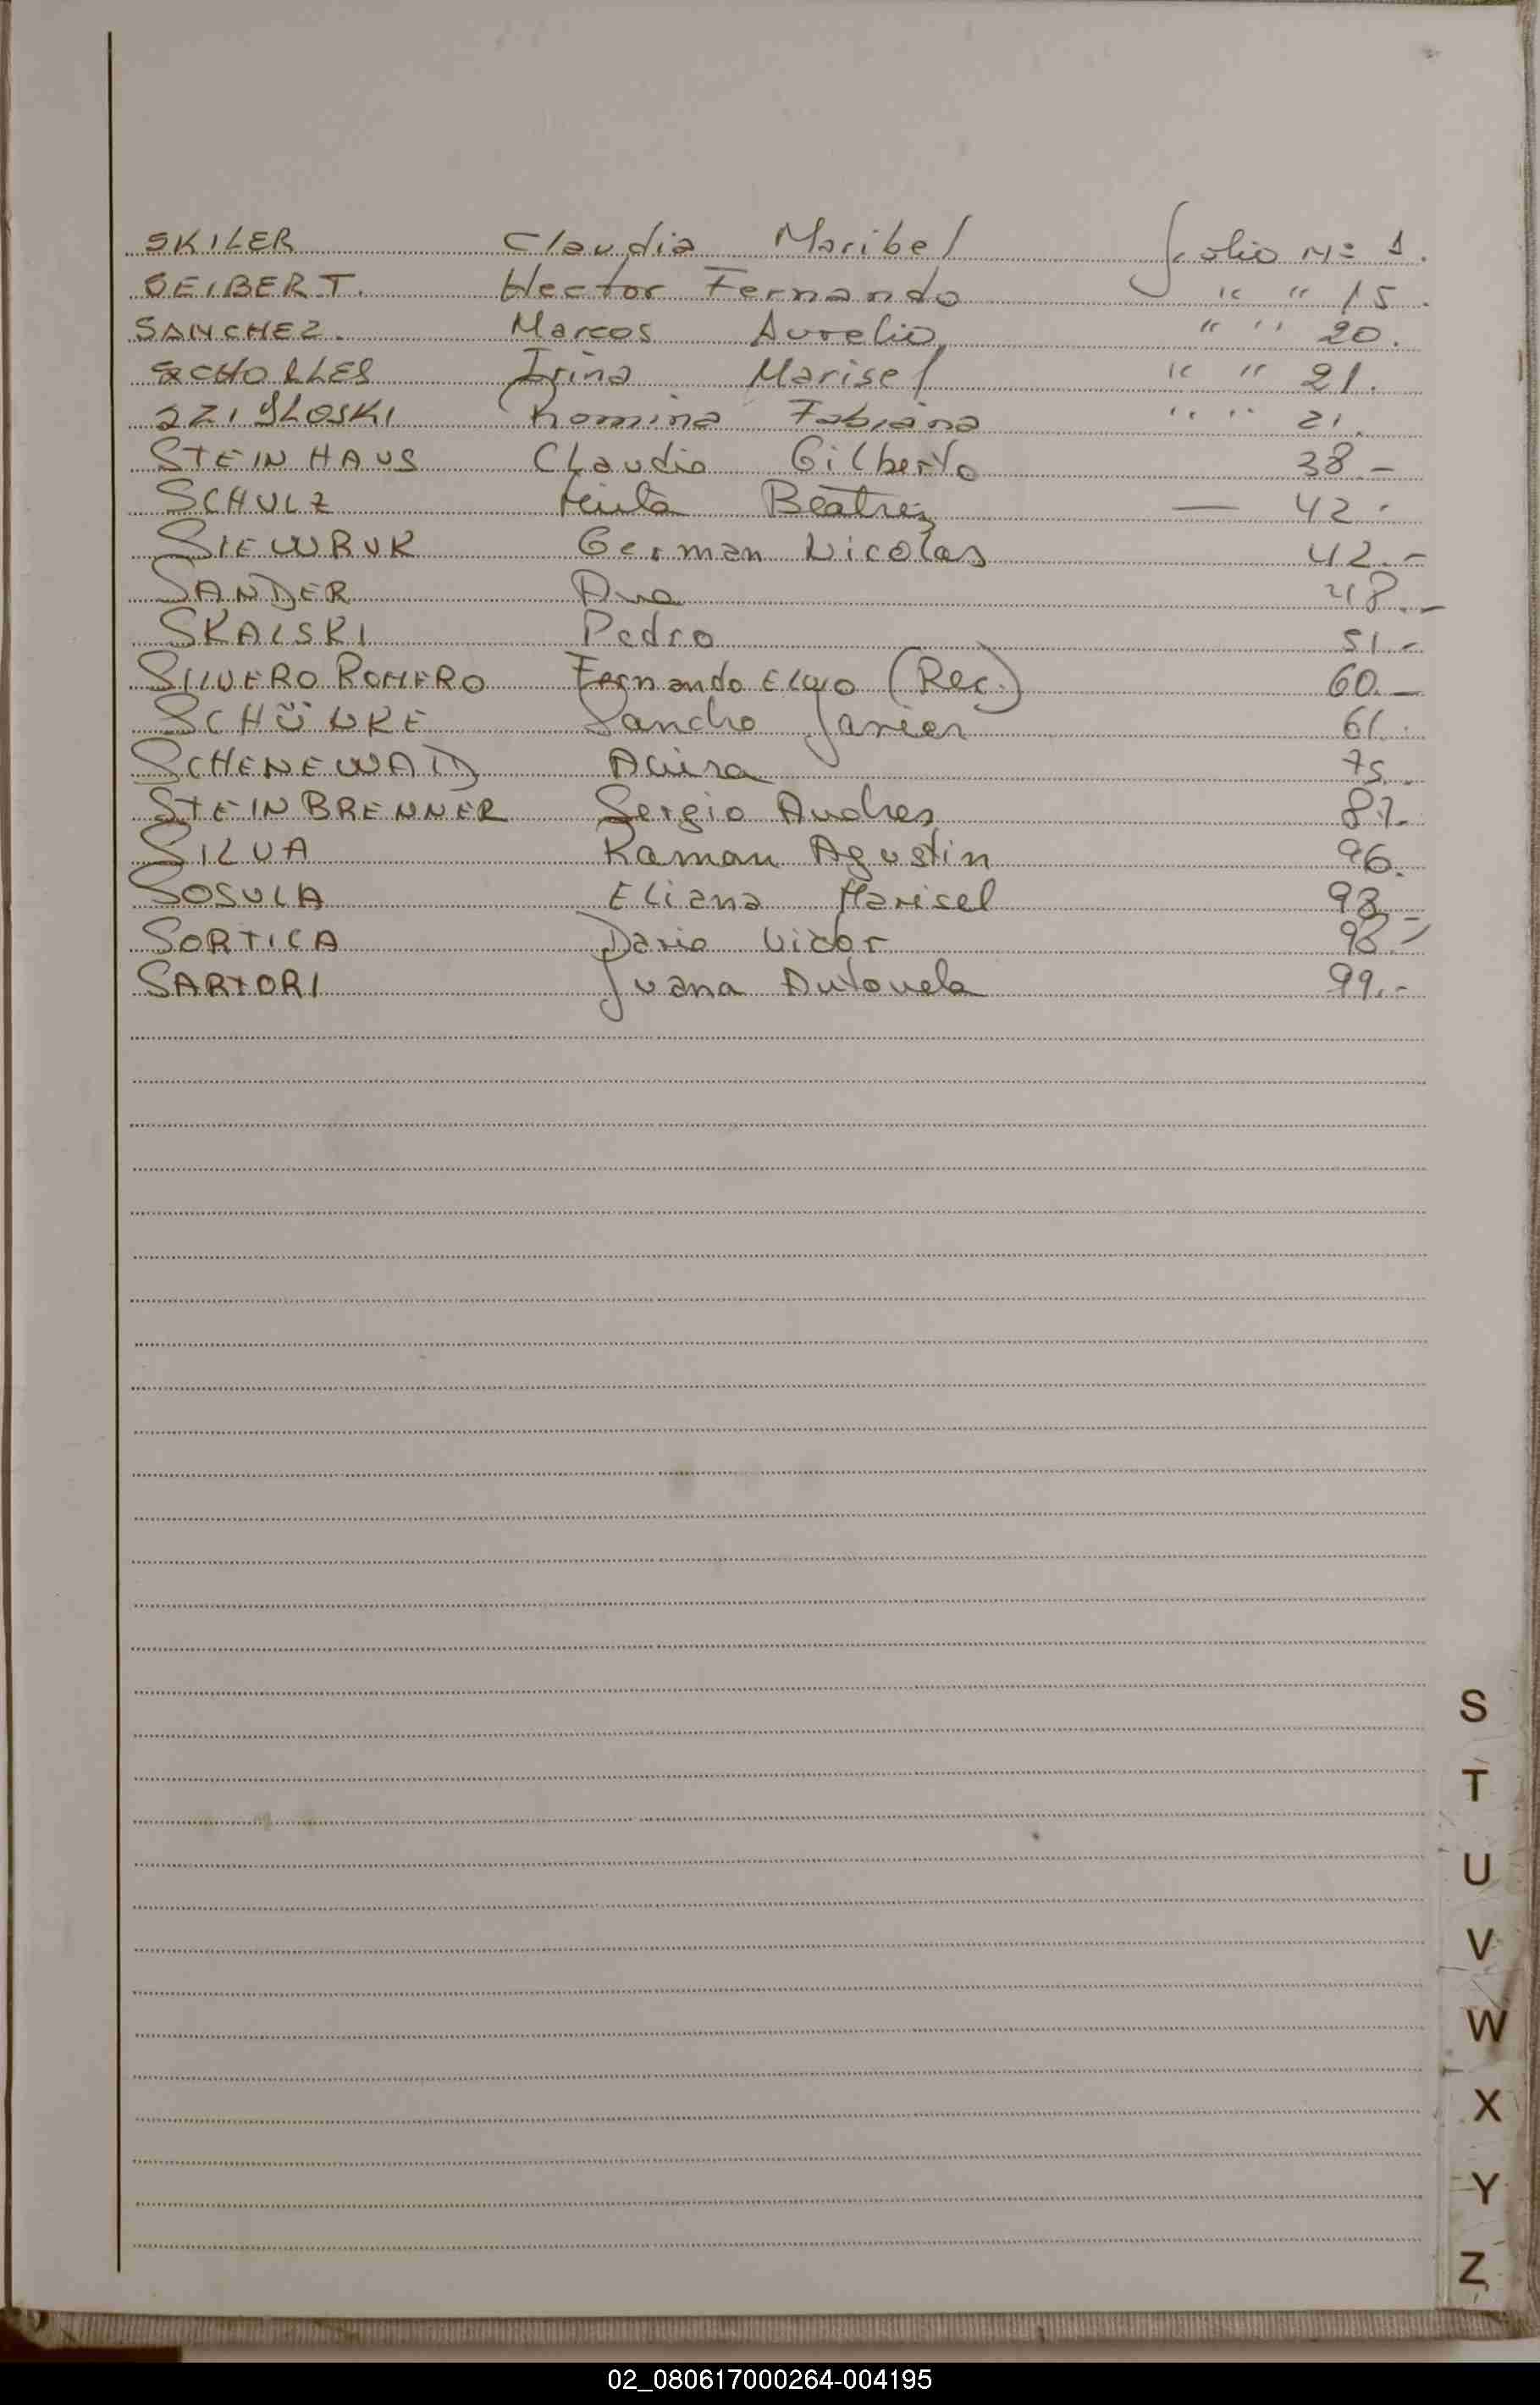 SKILER Claudia Maribel folio Nº 1.
SEIBERT. Hector Fernando " " 15.
SANCHEZ. Marcos Aurelio " " 20.
SCHOLLES Irina Marisel " " 21.
Romina Fabiana " " 21.
STEINHAUS Claudio Gilberto 38.-
SCHULZ Beatriz — 42.-
SIEWRUK German Nicolas 42.-
SANDER Ana 48.-
SKALSKI Pedro 51.-
SILVERO ROMERO Fernando (Rec.) 60.-
SCHÜNKE Sandro Javier 61.
SCHENEWALD 75.
STEINBRENNER Sergio Andres 87.-
SILVA Ramon Agustin 96.
SOSULA Eliana Marisel 98.-
SORTICA Dario Victor 98.-
SARTORI Juana Antonela 99.-
S
T
U
V
W
X
Y
Z
02_080617000264-004195